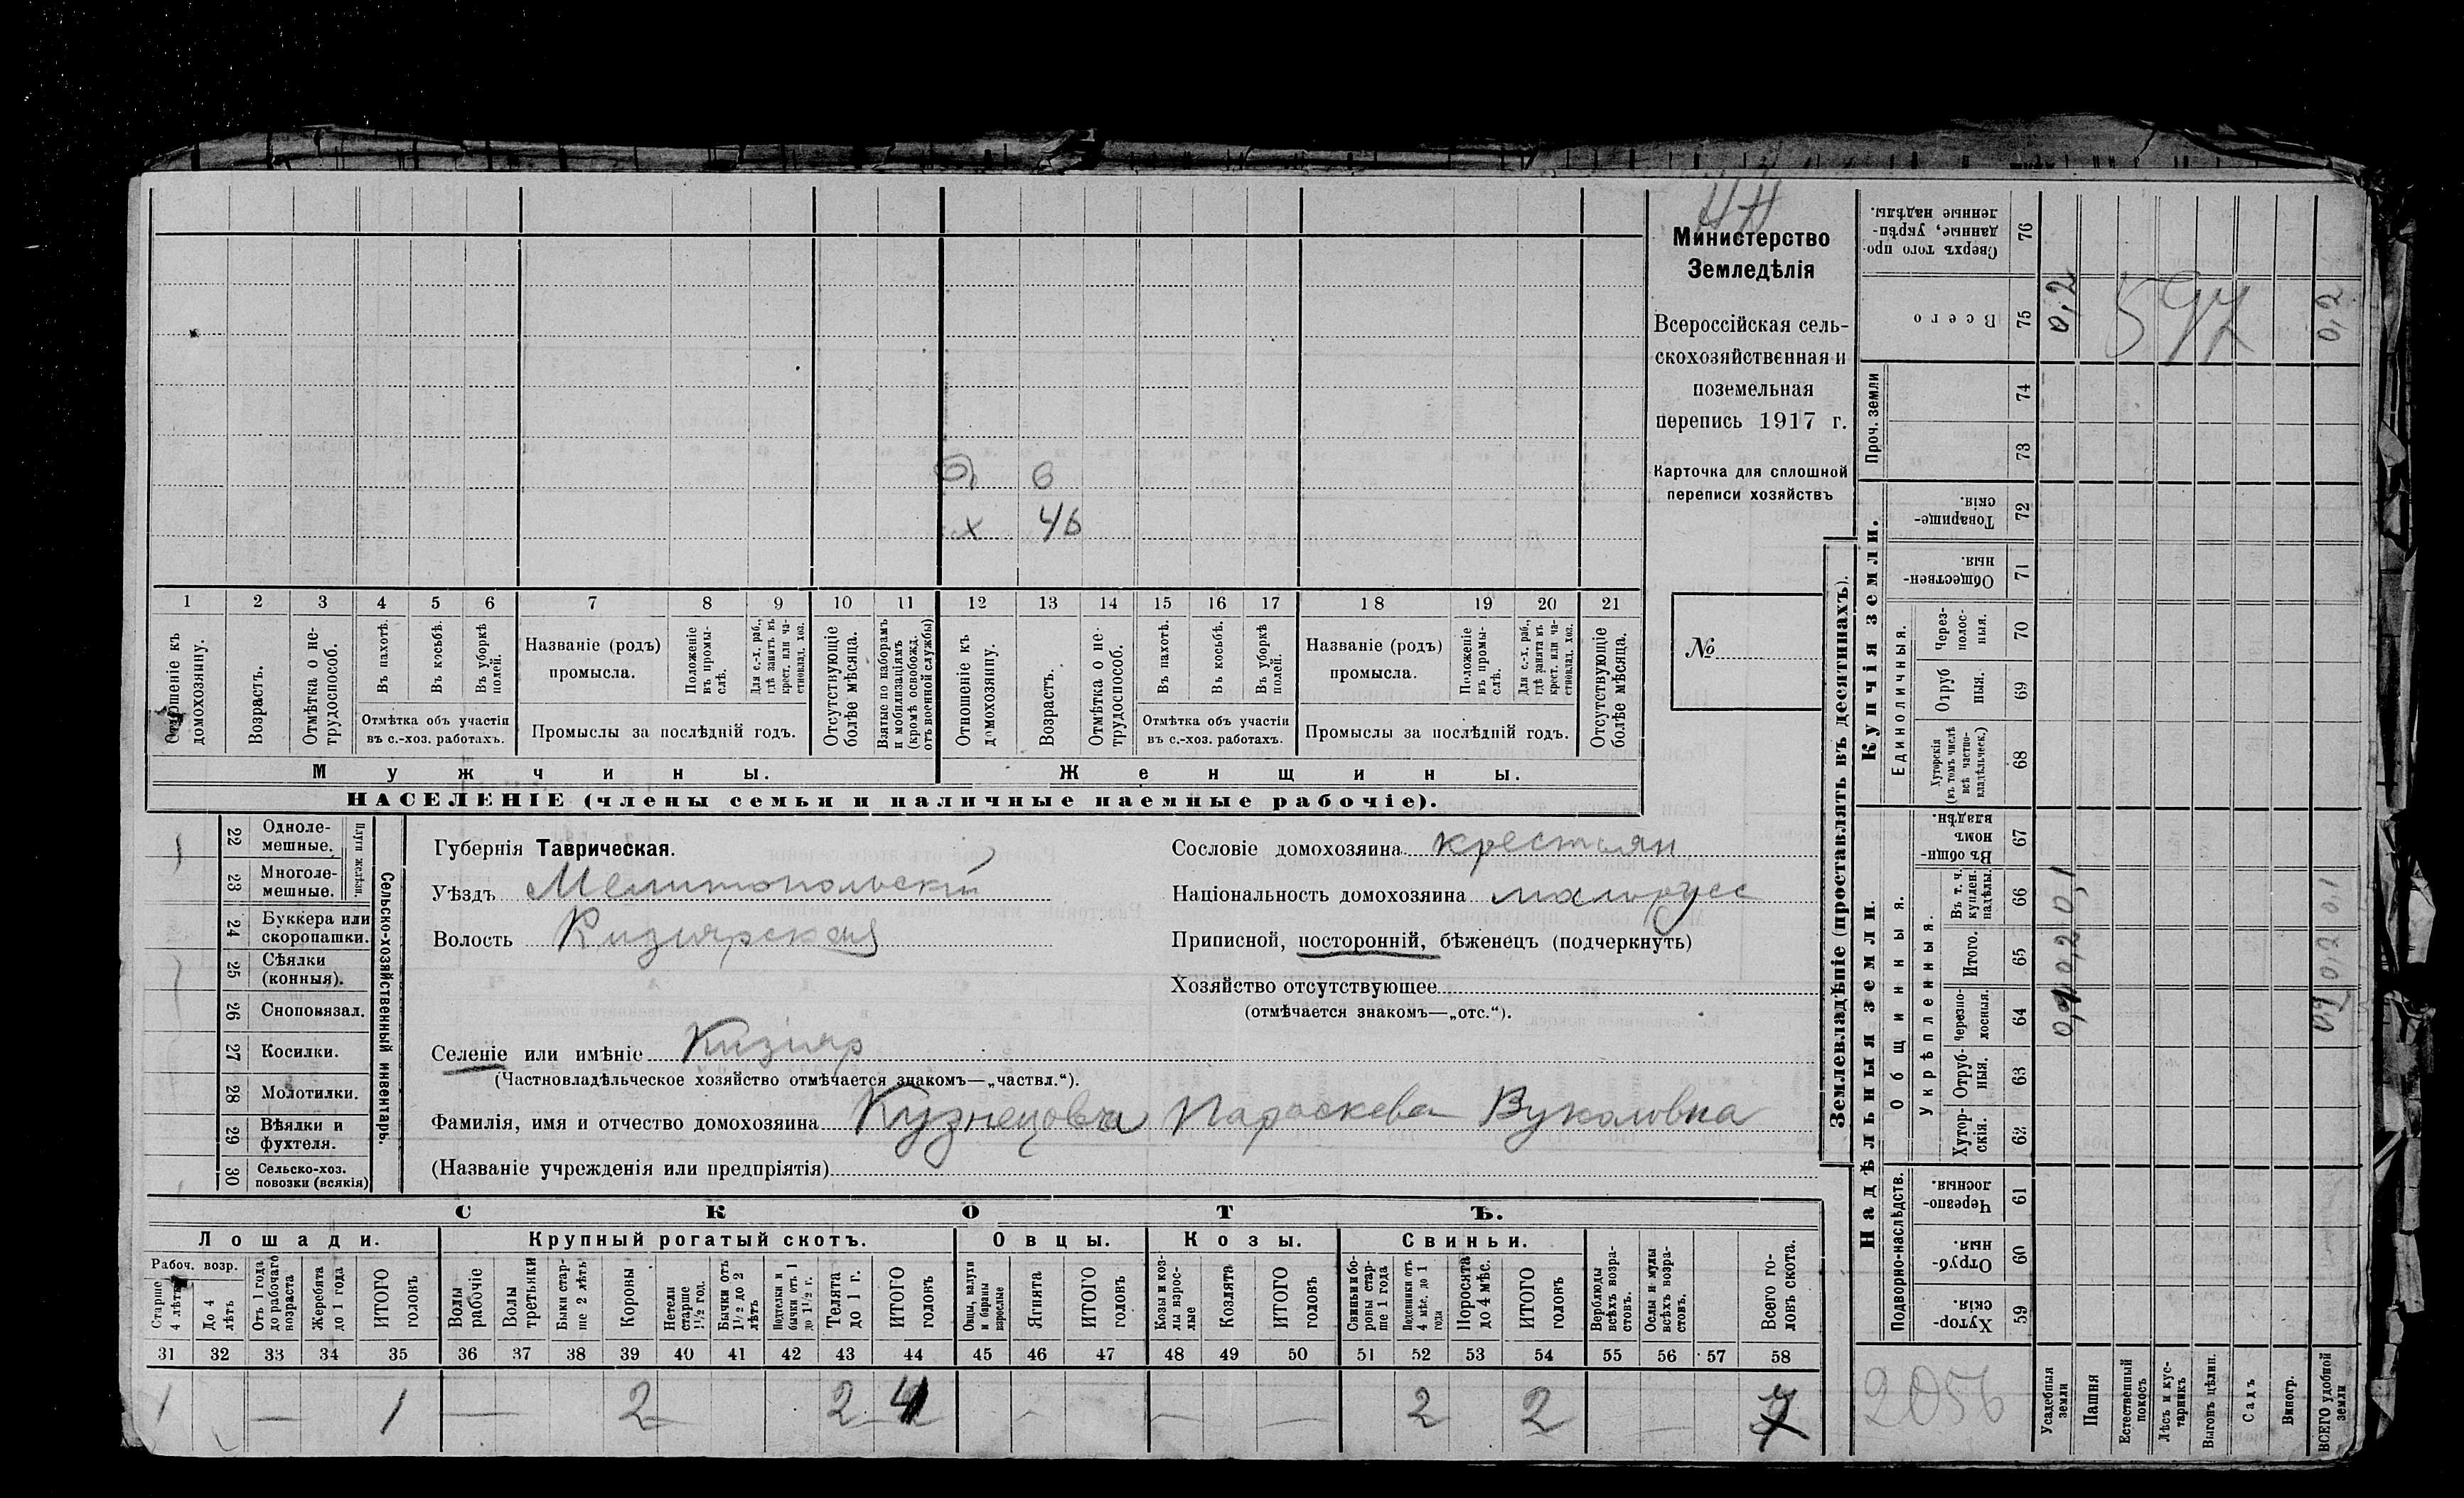 Министерство
Земледѣлія
Всероссійская сель-
скохозяйственная и
поземельная
перепись 1917 г.
Карточка для сплошной
переписи хозяйствъ
№
6
х 46
1 2 3 4 5 6 7 8 9 10 11 12 13 14 15 16 17 18 19 20 21
Отношеніе къ домохозяину.
Возрастъ.
Отмѣтка о не-трудоспособ.
Въ пахотѣ.
Въ косьбѣ.
Въ уборкѣ полей.
Отмѣтка объ участіи
въ с.-хоз. работахъ.
Названіе (родъ)
промысла.
Положеніе въ промы-слѣ.
Для с.-х. раб., гдѣ занятъ въ крест. или ча-стновлад. хоз.
Промыслы за послѣдній годъ.
Отсутствующіе болѣе мѣсяца.
Взятые по наборамъ и мобилизаціямъ (кромѣ освобожд. отъ военной службы)
Отношеніе къ домохозяину.
Возрастъ.
Отмѣтка о не-трудоспособ.
Въ пахотѣ.
Въ косьбѣ.
Въ уборкѣ полей.
Отмѣтка объ участіи
въ с.-хоз. работахъ.
Названіе (родъ)
промысла.
Положеніе въ промы-слѣ.
Для с.-х. раб., гдѣ занята въ крест. или ча-стновлад. хоз.
Промыслы за послѣдній годъ.
Отсутствующіе болѣе мѣсяца.
Мужчины.
Женщины.
НАСЕЛЕНІЕ (члены семьи и наличные наемные рабочіе).
Сельско-хозяйственный инвентарь.
Плуги желѣзн.
22 Однолемешные.
23 Многолемешные.
24 Буккера или скоропашки.
25 Сѣялки (конныя).
26 Сноповязал.
27 Косилки.
28 Молотилки.
29 Вѣялки и фухтеля.
30 Сельско-хоз. повозки (всякія)
Губернія Таврическая.
Уѣздъ Мелитопольскій
Волость Кизиярская
Сословіе домохозяина крестьян
Національность домохозяина малорусс
Приписной, посторонній, бѣженецъ (подчеркнуть)
Хозяйство отсутствующее
(отмѣчается знакомъ—„отс.“).
Селеніе или имѣніе Кизияр
(Частновладѣльческое хозяйство отмѣчается знакомъ—„частвл.“).
Фамилія, имя и отчество домохозяина Кузнецова Параскева Вуколовна
(Названіе учрежденія или предпріятія)
СКОТЪ.
Лошади.
Крупный рогатый скотъ.
Овцы.
Козы.
Свиньи.
Рабоч. возр.
Старше 4 лѣтъ
До 4 лѣтъ
Отъ 1 года до рабочаго возраста
Жеребята до 1 года
ИТОГО головъ
Волы рабочіе
Волы третьяки
Быки стар-ше 2 лѣтъ
Коровы
Нетели старше 1½ год.
Бычки отъ 1½ до 2 лѣтъ
Подтелки и бычки отъ 1 до 1½ г.
Телята до 1 г.
ИТОГО головъ
Овцы, валухи и бараны взрослые
Ягнята
ИТОГО головъ
Козы и коз-лы взрос-лые
Козлята
ИТОГО головъ
Свиньи и бо-ровы стар-ше 1 года
Подсвинки отъ 4 мѣс. до 1 года
Поросята до 4 мѣс.
ИТОГО головъ
Верблюды всѣхъ возра-стовъ.
Ослы и мулы всѣхъ возра-стовъ.
Всего го-ловъ скота.
31 32 33 34 35 36 37 38 39 40 41 42 43 44 45 46 47 48 49 50 51 52 53 54 55 56 57 58
1 — 1 — 2 — 2 4 — — — 2 2 — 7
Землевладѣніе (проставлять въ десятинахъ).
Купчія земли.
Надѣльныя земли.
Сверхъ того про-данные, укрѣп-ленные надѣлы. 76
Всего 75 0,2 0,2
597
Проч. земли 74 73
Товарище-скія. 72
Обществен-ныя. 71
Единоличныя.
Через-полос-ныя. 70
Отруб-ныя. 69
Хуторскія (въ томъ числѣ всѣ частно-владѣльческ.) 68
Общинныя.
Въ общин-номъ владѣн. 67
Укрѣпленныя.
Въ т. ч. куплен. надѣлы. 66 0,1 0.1
Итого. 65 0,2 0,2
Черезпо-лосныя. 64
Отруб-ныя. 63
Хутор-скія. 62
Подворно-наслѣдств.
Черезпо-лосныя. 61
Отруб-ныя 60
Хутор-скія. 59
2056
Усадебныя земли
Пашня
Естественный покосъ
Лѣсъ и кус-тарникъ
Выгонъ цѣлин.
Садъ
Виногр.
ВСЕГО удобной земли